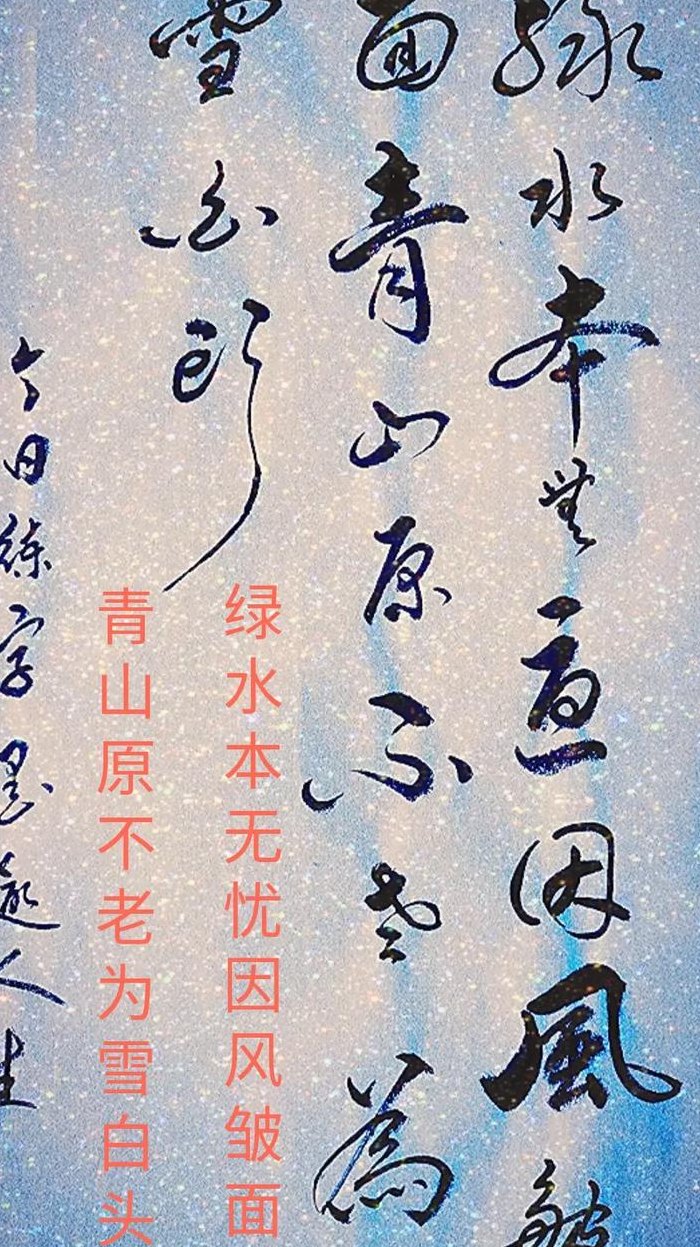 绿水本無憂因風皺
面青山原不老為
雪白頭
今日练字墨趣人生
绿水本无忧因风皱面
青山原不老为雪白头